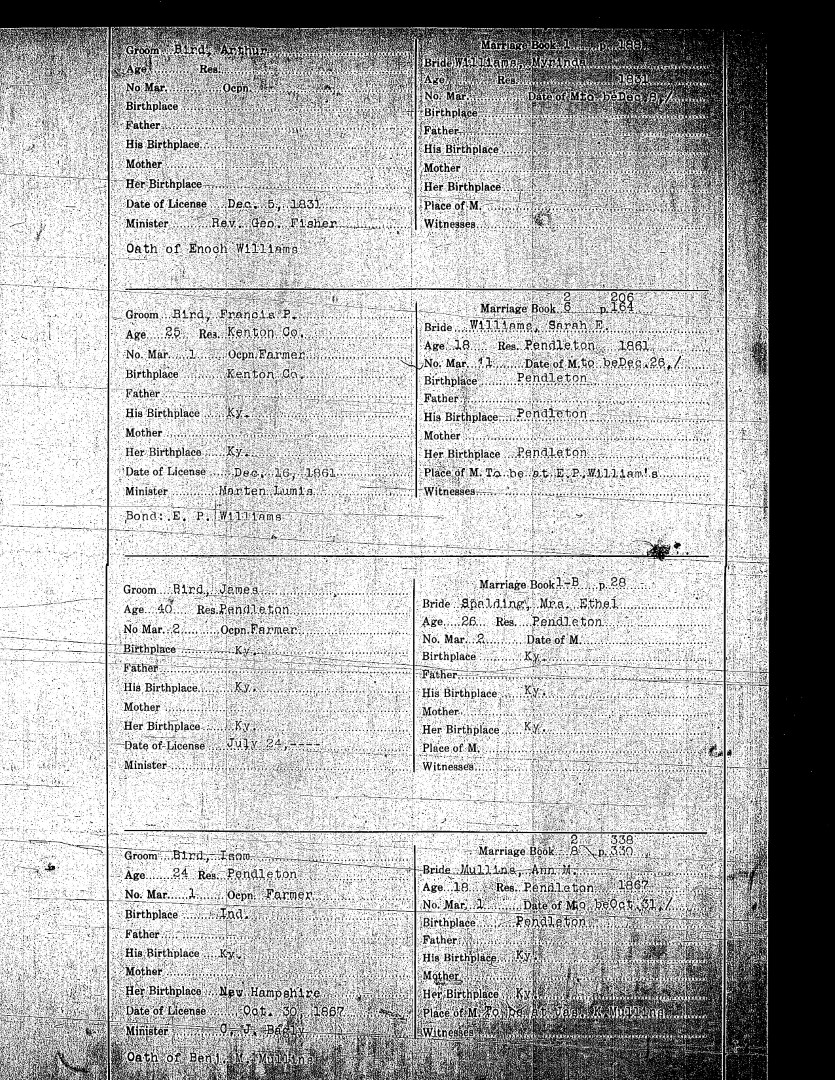 Groom Bird, Arthur
Age Res.
No Mar. Ocpn.
Birthplace
Father
His Birthplace
Mother
Her Birthplace
Date of License Dec. 5, 1831
Minister Rev. Geo. Fisher
Oath of Enoch Williams
Marriage Book 1 p. 188
Bride Williams, Myrinda
Age Res. 1831
No. Mar. Date of M. to be Dec. 8, /
Birthplace
Father
His Birthplace
Mother
Her Birthplace
Place of M.
Witnesses
Groom Bird, Francis P.
Age 25 Res. Kenton Co.
No. Mar. 1 Ocpn. Farmer
Birthplace Kenton Co.
Father
His Birthplace Ky.
Mother
Her Birthplace Ky.
Date of License Dec. 16, 1861
Minister Marten Lumis
Bond: E. P. Williams
2 206
Marriage Book 6 p. 164
Bride Williams, Sarah E.
Age 18 Res. Pendleton 1861
No. Mar. 1 Date of M. to be Dec. 26, /
Birthplace Pendleton
Father
His Birthplace Pendleton
Mother
Her Birthplace Pendleton
Place of M. To be at E.P. William's
Witnesses
Groom Bird, James
Age 40 Res. Pendleton
No Mar. 2 Ocpn. Farmer
Birthplace Ky.
Father
His Birthplace Ky.
Mother
Her Birthplace Ky.
Date of License July 24, ----
Minister
Marriage Book 1-B p. 28
Bride Spalding, Mrs. Ethel
Age 26 Res. Pendleton
No. Mar. 2 Date of M.
Birthplace Ky.
Father
His Birthplace Ky.
Mother
Her Birthplace Ky.
Place of M.
Witnesses
Groom Bird, Isom
Age 24 Res. Pendleton
No. Mar. 1 Ocpn. Farmer
Birthplace Ind.
Father
His Birthplace Ky.
Mother
Her Birthplace New Hampshire
Date of License Oct. 30, 1867
Minister C. J.
Oath of Benj. Mullins
2 338
Marriage Book 8 p. 330
Bride Mullins, Ann M.
Age 18 Res. Pendleton 1867
No. Mar. 1 Date of M. to be Oct. 31, /
Birthplace Pendleton
Father
His Birthplace Ky.
Mother
Her Birthplace Ky.
Place of M. To be at Jas. K. Mullins
Witnesses